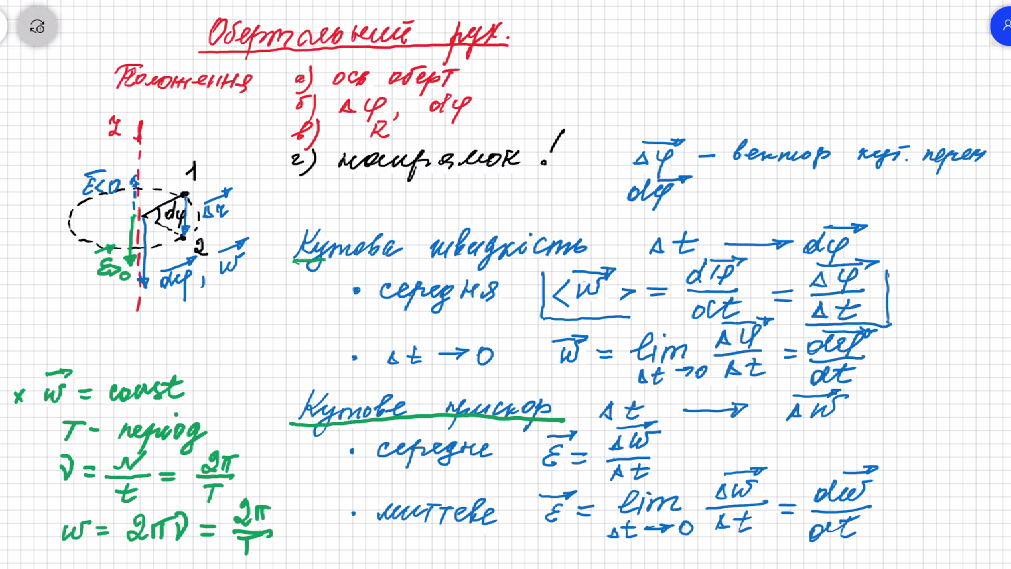 Обертальний рух.
Положення
а) ось оберт
б) Δφ, dφ
в) R
г) напрямок!
Z
1
2
dφ
Δr
ε<0
ε>0
dφ, w
Δφ – вектор кут. перем
dφ
Кутова швидкість Δt → dφ
• середня <w> = dφ/dt = Δφ/Δt
• Δt → 0 w = lim Δt→0 Δφ/Δt = dφ/dt
Кутове прискор Δt → Δw
• середнє ε = Δw/Δt
• миттєве ε = lim Δt→0 Δw/Δt = dw/dt
× w = const
T – період
ν = N/t = 2π/T
w = 2πν = 2π/T